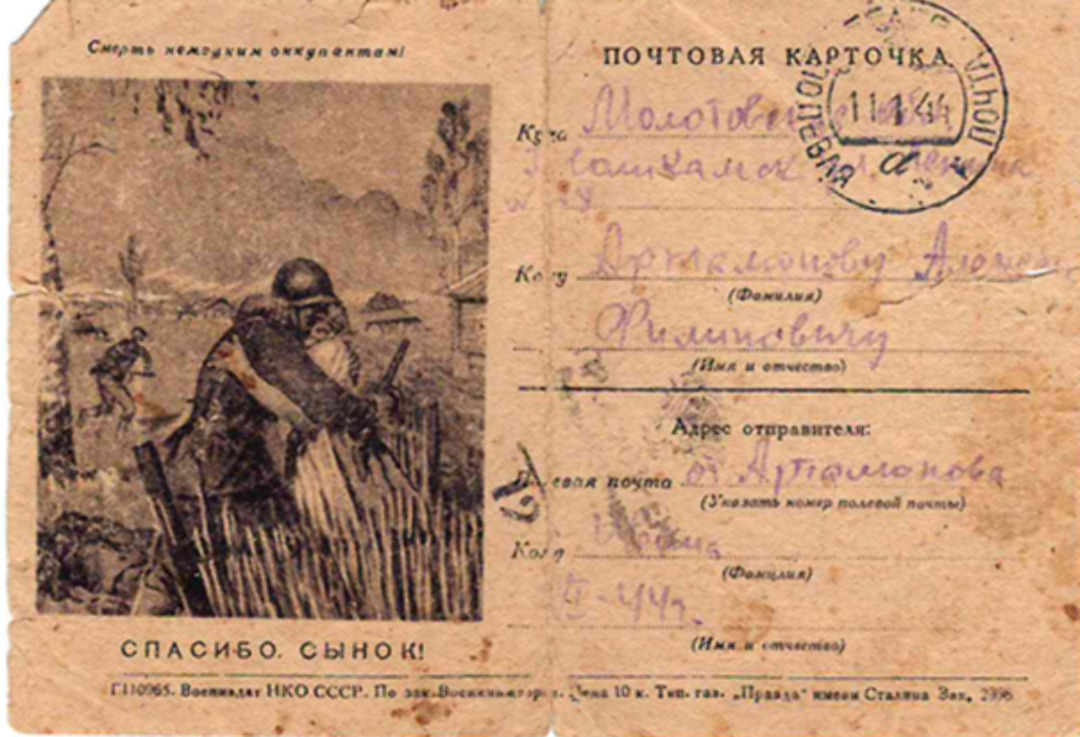 Смерть немецким оккупантам!
СПАСИБО, СЫНОК!
ПОЧТОВАЯ КАРТОЧКА
ПОЛЕВАЯ ПОЧТА
11 1 44
а
Куда Молотовская
Соликамск
28
Кому Артамонову
(Фамилия)
Филиповичу
(Имя и отчество)
Адрес отправителя:
Полевая почта от Артамонова
(Указать номер полевой почты)
Кому
(Фамилия)
I-44г.
(Имя и отчество)
Г110965. Воениздат НКО СССР. По зак. Военкниготорга. Цена 10 к. Тип. газ. „Правда" имени Сталина Зак. 2996